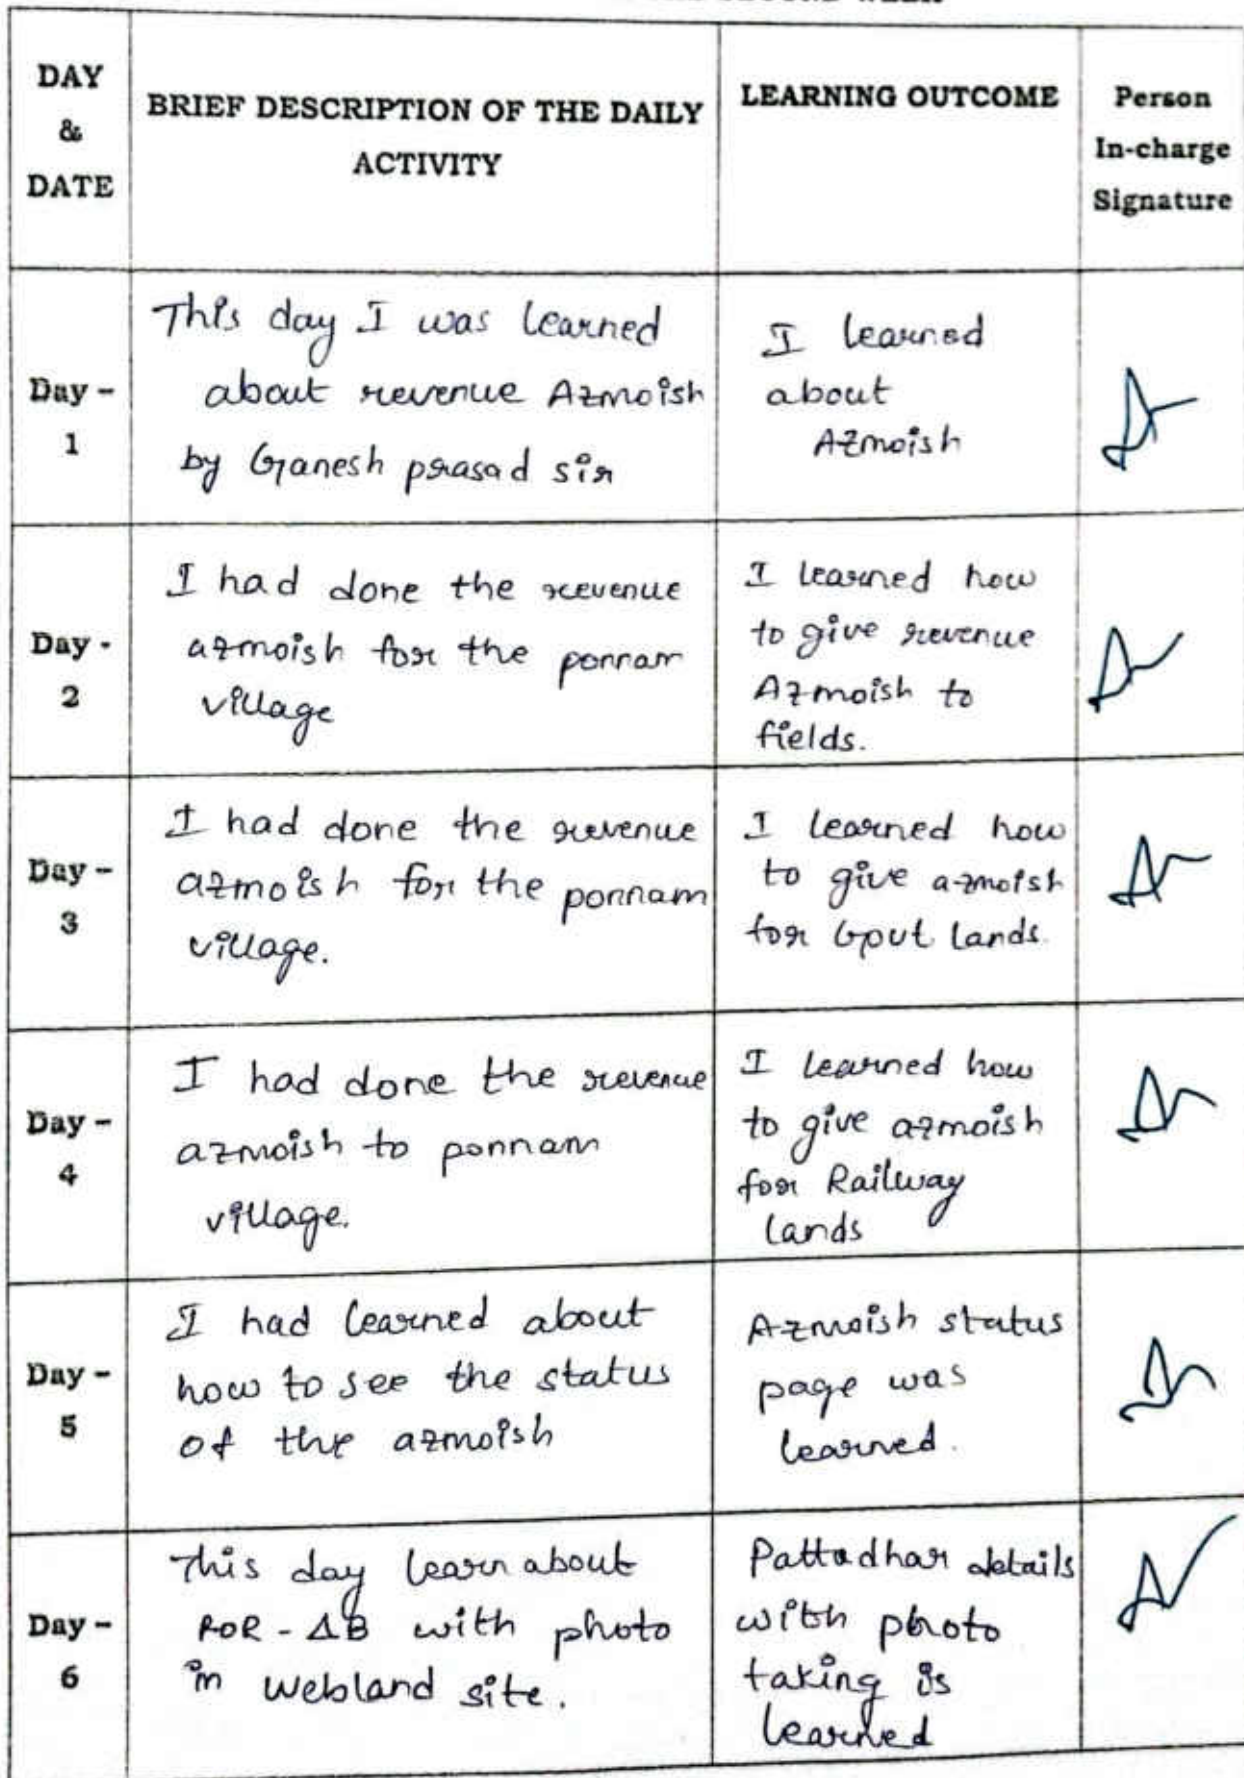 SECOND WEEK
DAY
&
DATE
BRIEF DESCRIPTION OF THE DAILY
ACTIVITY
LEARNING OUTCOME
Person
In-charge
Signature
Day –
1
This day I was learned
about revenue Azmoish
by Ganesh prasad sir
I learned
about
Azmoish
Day -
2
I had done the revenue
azmoish for the ponnam
village
I learned how
to give revenue
Azmoish to
fields.
Day –
3
I had done the revenue
azmoish for the ponnam
village.
I learned how
to give azmoish
for Govt lands.
Day –
4
I had done the revenue
azmoish to ponnam
village.
I learned how
to give azmoish
for Railway
lands
Day –
5
I had learned about
how to see the status
of the azmoish
Azmoish status
page was
learned.
Day –
6
This day learn about
ROR - 1B with photo
in webland site.
Pattadhar details
with photo
taking is
learned